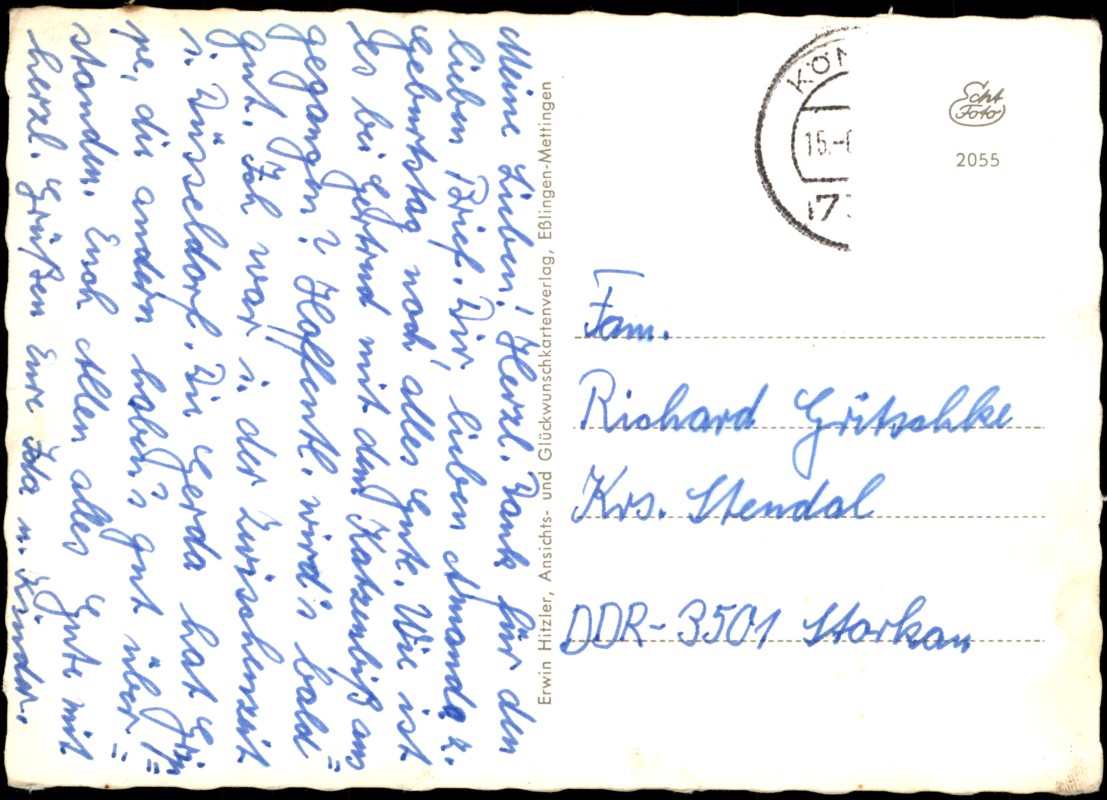 Meine Lieben! Herzl. Dank für den
lieben Brief. Dir lieben Amanda z.
Geburtstag noch alles Gute. Wie ist
es bei Gertrud mit dem Katzenbiß aus=
gegangen? Hoffentl. wird's bald
gut. Ich war i. der Zwischenzeit
i. Düsseldorf. Die Gerda hat Grip=
pe, die andern haben's gut über=
standen. Euch Allen alles Gute mit
herzl. Grüßen Eure Ida u. Kinder.
Erwin Hitzler, Ansichts- und Glückwunschkartenverlag, Eßlingen-Mettingen
KÖN
15.-
Echt
Foto
2055
Fam.
Richard Gritschke
Krs. Stendal
DDR-3501 Storkau